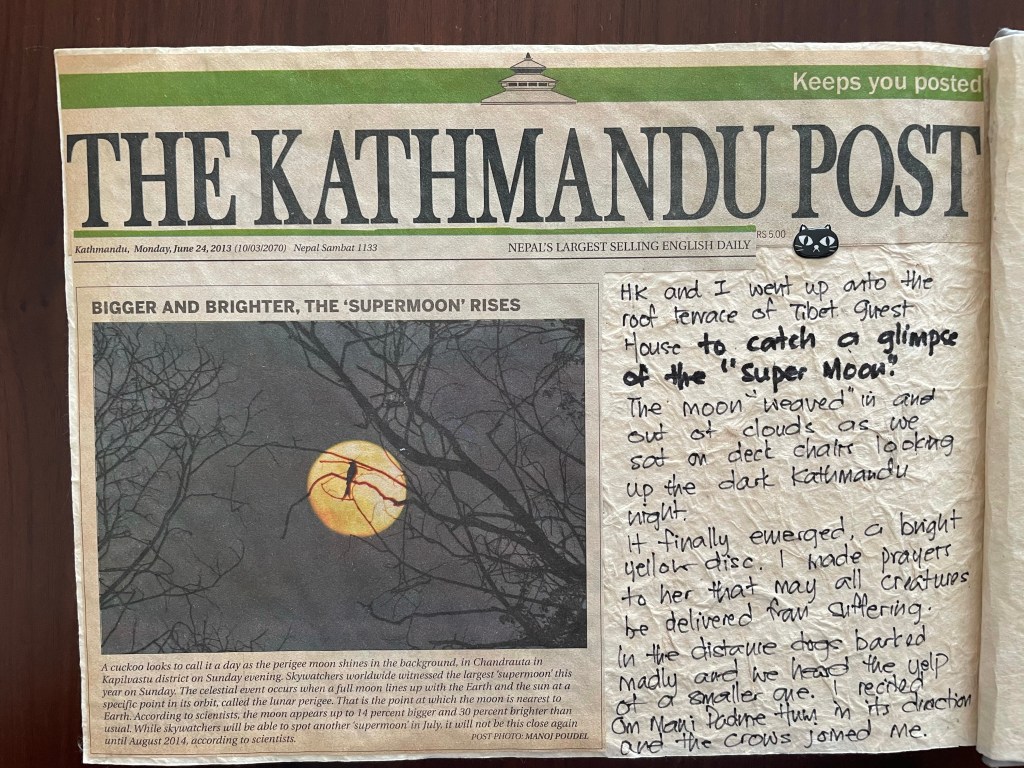 Keeps you posted
THE KATHMANDU POST
Kathmandu, Monday, June 24, 2013 (10/03/2070) Nepal Sambat 1133
NEPAL'S LARGEST SELLING ENGLISH DAILY
RS 5.00
BIGGER AND BRIGHTER, THE 'SUPERMOON' RISES
A cuckoo looks to call it a day as the perigee moon shines in the background, in Chandrauta in
Kapilvastu district on Sunday evening. Skywatchers worldwide witnessed the largest 'supermoon' this
year on Sunday. The celestial event occurs when a full moon lines up with the Earth and the sun at a
specific point in its orbit, called the lunar perigee. That is the point at which the moon is nearest to
Earth. According to scientists, the moon appears up to 14 percent bigger and 30 percent brighter than
usual. While skywatchers will be able to spot another 'supermoon' in July, it will not be this close again
until August 2014, according to scientists.
POST PHOTO: MANOJ POUDEL
HK and I went up onto the
roof terrace of Tibet Guest
House to catch a glimpse
of the "Super Moon".
The moon "weaved" in and
out of clouds as we
sat on deck chairs looking
up the dark Kathmandu
night.
It finally emerged, a bright
yellow disc. I made prayers
to her that may all creatures
be delivered from suffering.
In the distance dogs barked
madly and we heard the yelp
of a smaller one. I recited
Om Mani Padme Hum in its direction
and the crows joined me.